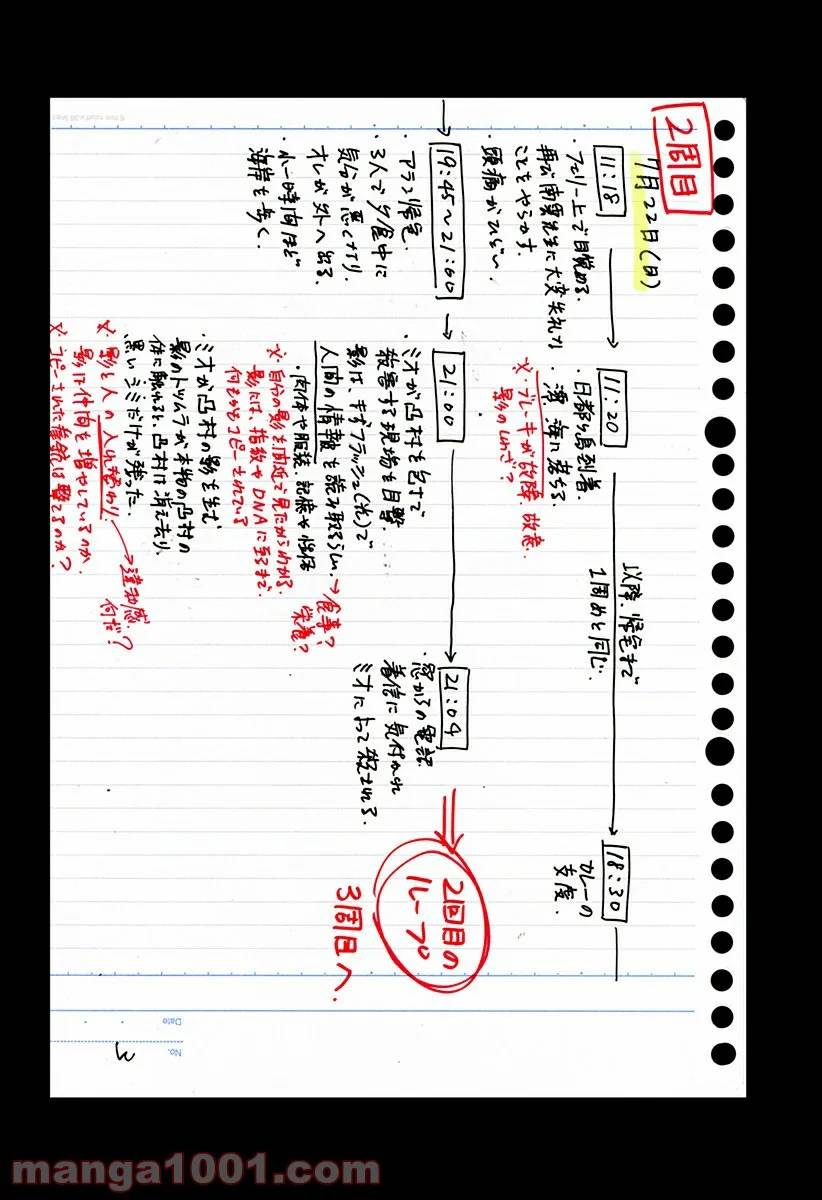 2周目
7月22日(日)
11:18
・フェリー上で目覚める.
再び南雲先生に大変失礼な
ことをやらかす.
頭痛がひどい
11:20
・日都ヶ島到着.
・澪、海に落ちる.
※.ブレーキが故障、故意.
影のしわざ?
以降、帰宅まで
1周めと同じ.
18:30
カレーの
支度.
19:45〜21:00
・アラン帰宅.
・3人で夕食中に
気分が悪くなり、
オレが外へ出る.
・小一時間ほど
海岸を歩く.
21:00
・ミオが凸村を包丁で
殺害する現場を目撃.
影は、キラフラッシュ(光)で
人間の情報を読み取るらしい.
→食事?
栄養?
・肉体や服装、記憶や性格
※.自分の影を間近で見たからわかる.
影には、指紋やDNAに至るまで、
何もかもコピーされている
・ミオが凸村の影を生む
影のトツムラが本物の凸村の
体に触れると、凸村は消え去り、
黒いシミだけが残った.
※.影と人の入れ替わり.
影は仲間を増やしているのか
→違和感.
何だ?
※.コピーされた拳銃は撃てるのか?
21:04
・窓からの電話.
着信に気付かれ
ミオによって殺される.
2回目の
ループ
3周目へ.
Date
No.
3
manga1001.com